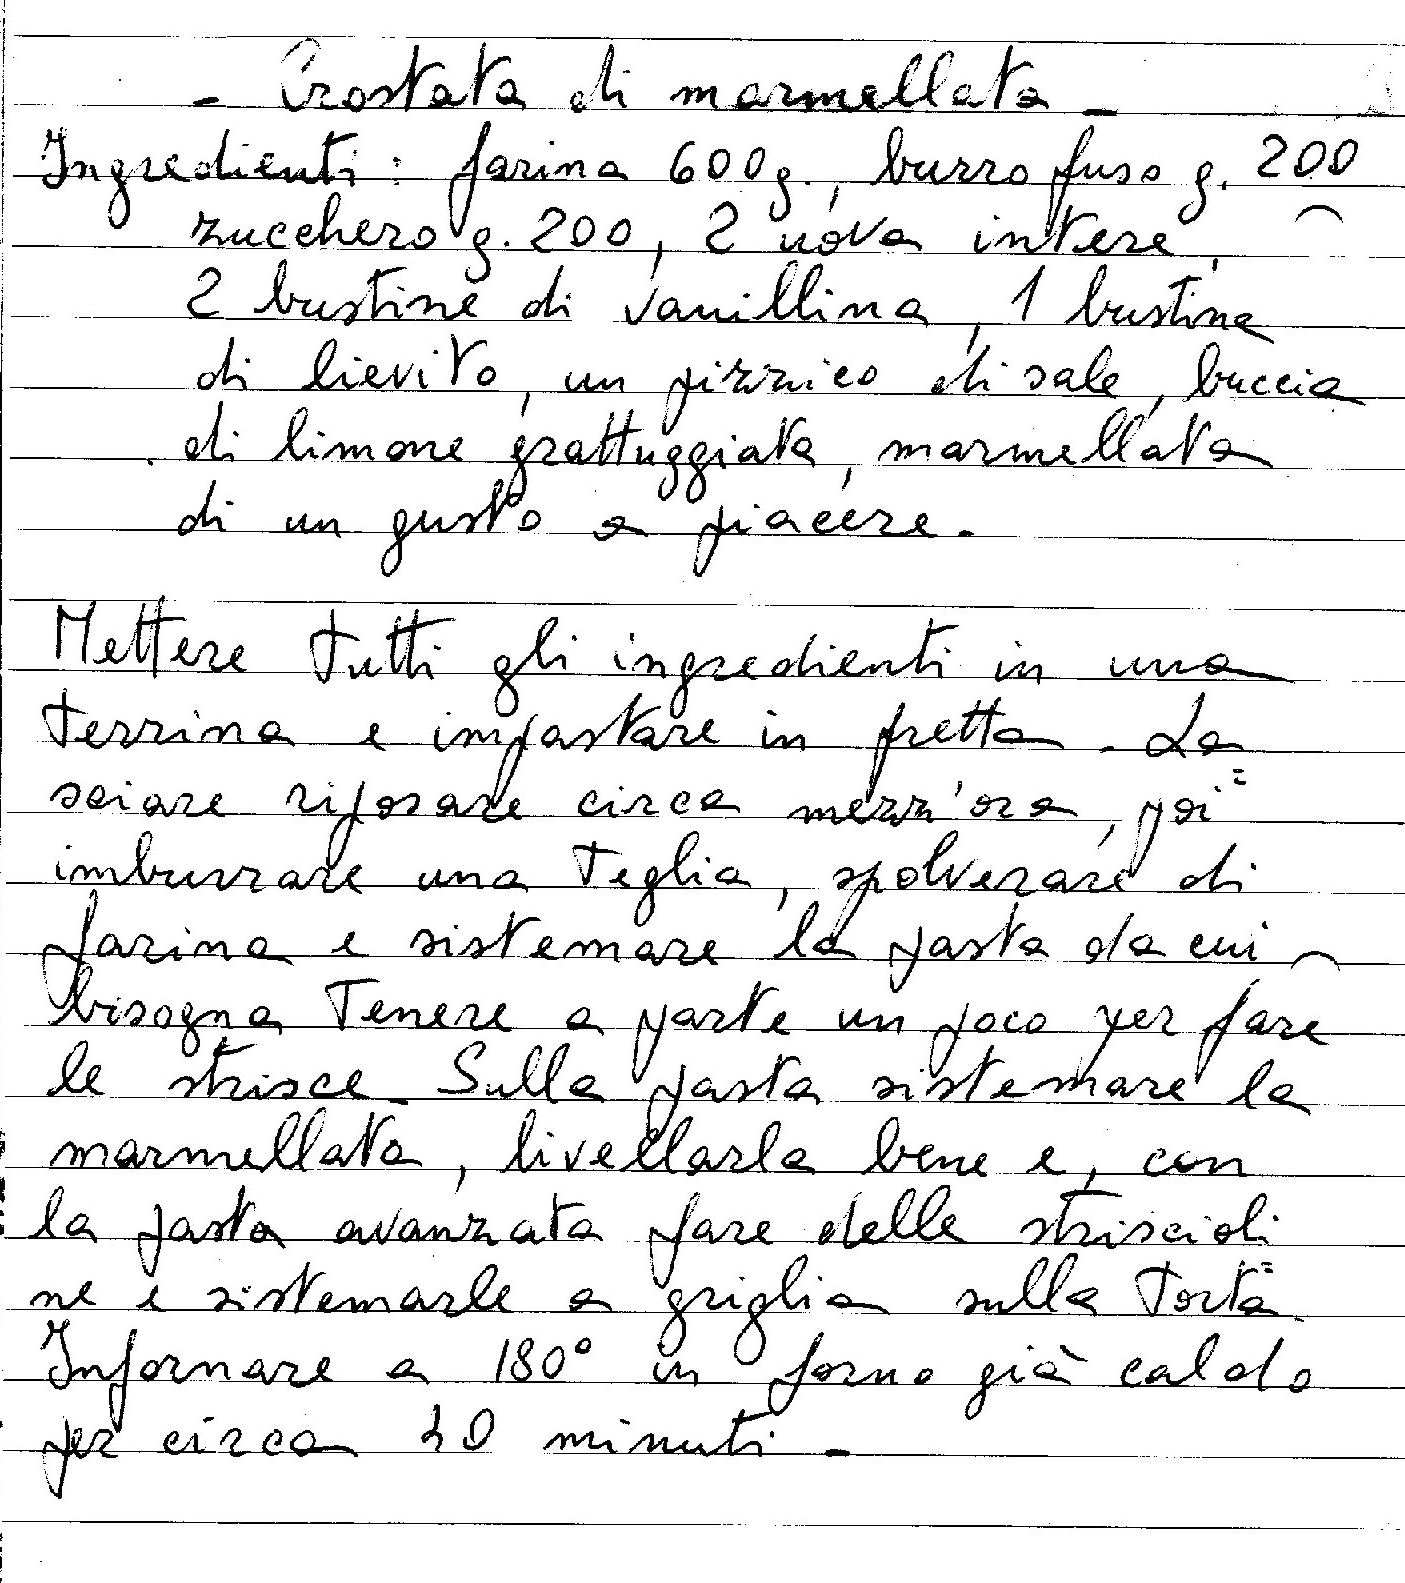 - Crostata di marmellata -
Ingredienti: farina 600g., burro fuso g. 200
zucchero g. 200, 2 uova intere,
2 bustine di vanillina, 1 bustina
di lievito, un pizzico di sale, buccia
di limone grattuggiata, marmellata
di un gusto a piacere.
Mettere tutti gli ingredienti in una
terrina e impastare in fretta. La=
sciare riposare circa mezz'ora, poi
imburrare una teglia, spolverare di
farina e sistemare la pasta da cui
bisogna tenere a parte un poco per fare
le strisce. Sulla pasta sistemare la
marmellata, livellarla bene e, con
la pasta avanzata fare delle striscioli=
ne e sistemarle a griglia sulla torta.
Infornare a 180° in forno già caldo
per circa 40 minuti -